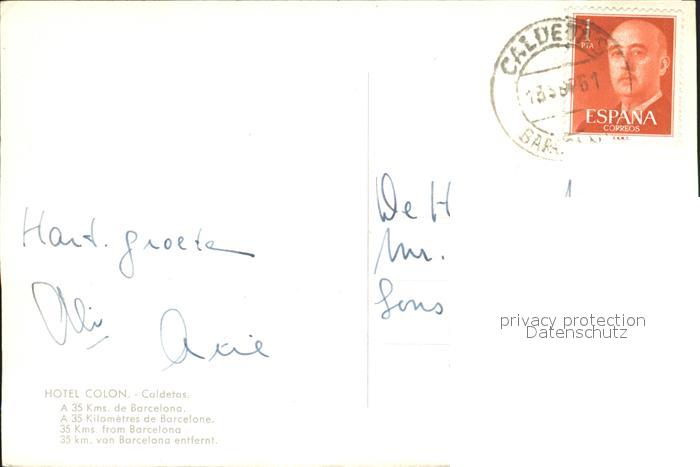 CALDETAS
ESPAÑA
CORREOS
1
PTA
Hart. groeten
Ali
Arie
De H
Mr.
Gons
privacy protection
Datenschutz
HOTEL COLON. - Caldetas.
A 35 Kms. de Barcelona.
A 35 Kilomètres de Barcelone.
35 Kms. from Barcelona
35 km. von Barcelona entfernt.